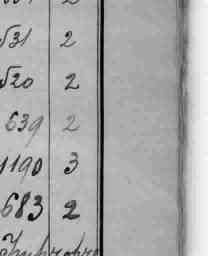 531 2
520 2
639 2
1190 3
683 2